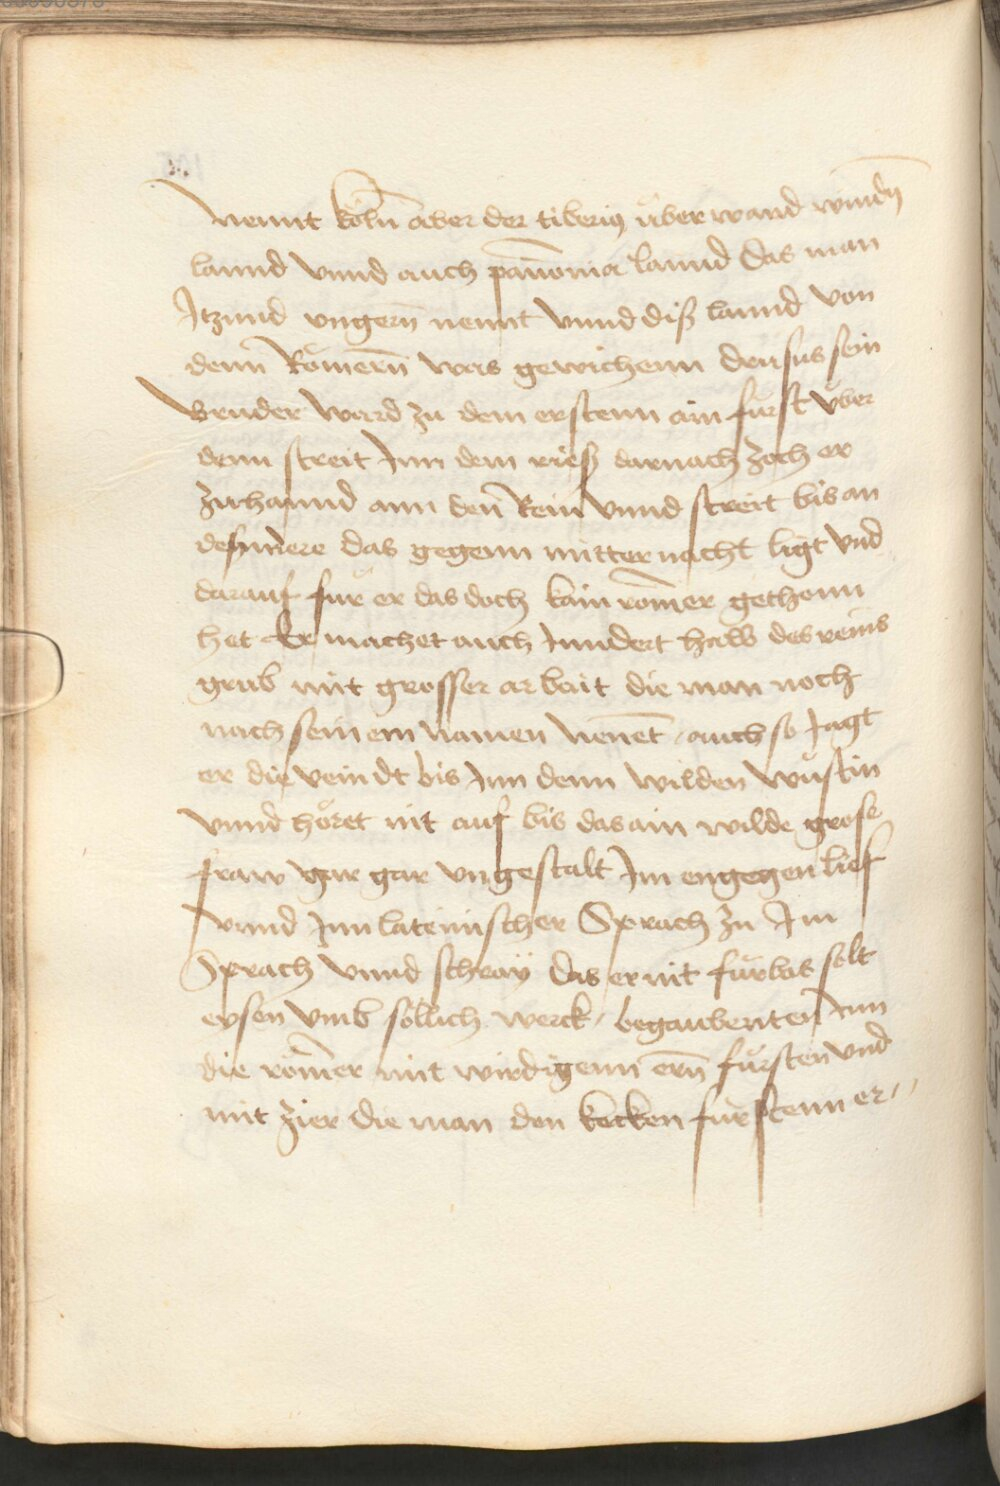 nennt köln̄ aber der tiberiꝯ über wand wind̄ꝫ
lannd vnnd auch pan̄onia lannd das man
Itzund vngern̄ nennt vnnd diß lannd von
denn Römern̄ was gewichenn drusus sein
bruder ward zu dem erstenn ain fürst v̈ber
denn streit Inn dem rieß darnach zoch er
zuhannd ann den̄ Rein vnnd streit bis an
des mere das gegenn mitternacht ligt vnd
darauf für er das doch kain röm̄er gethonn
het Er machet auch Inndert halb des reins
grub mit grosser arbait die man noch
nach seinem namen nen̄et / auch so Jagt
er die veindt bis Inn denn wilden wüstin
vnnd höret nit auf bis das ain wilde grose
fraw gar gar vngestalt Im engegen lief
vnnd Inn lateinischer Sprach zu Im
Sprach vnnd schray das er nit fürbas solt
eysen vmb söllich werck / begaubenten Inn
die röm̄er mit wirdigenn ern̄ fürsten vnd
mit zier die man den kecken fürstenn er //